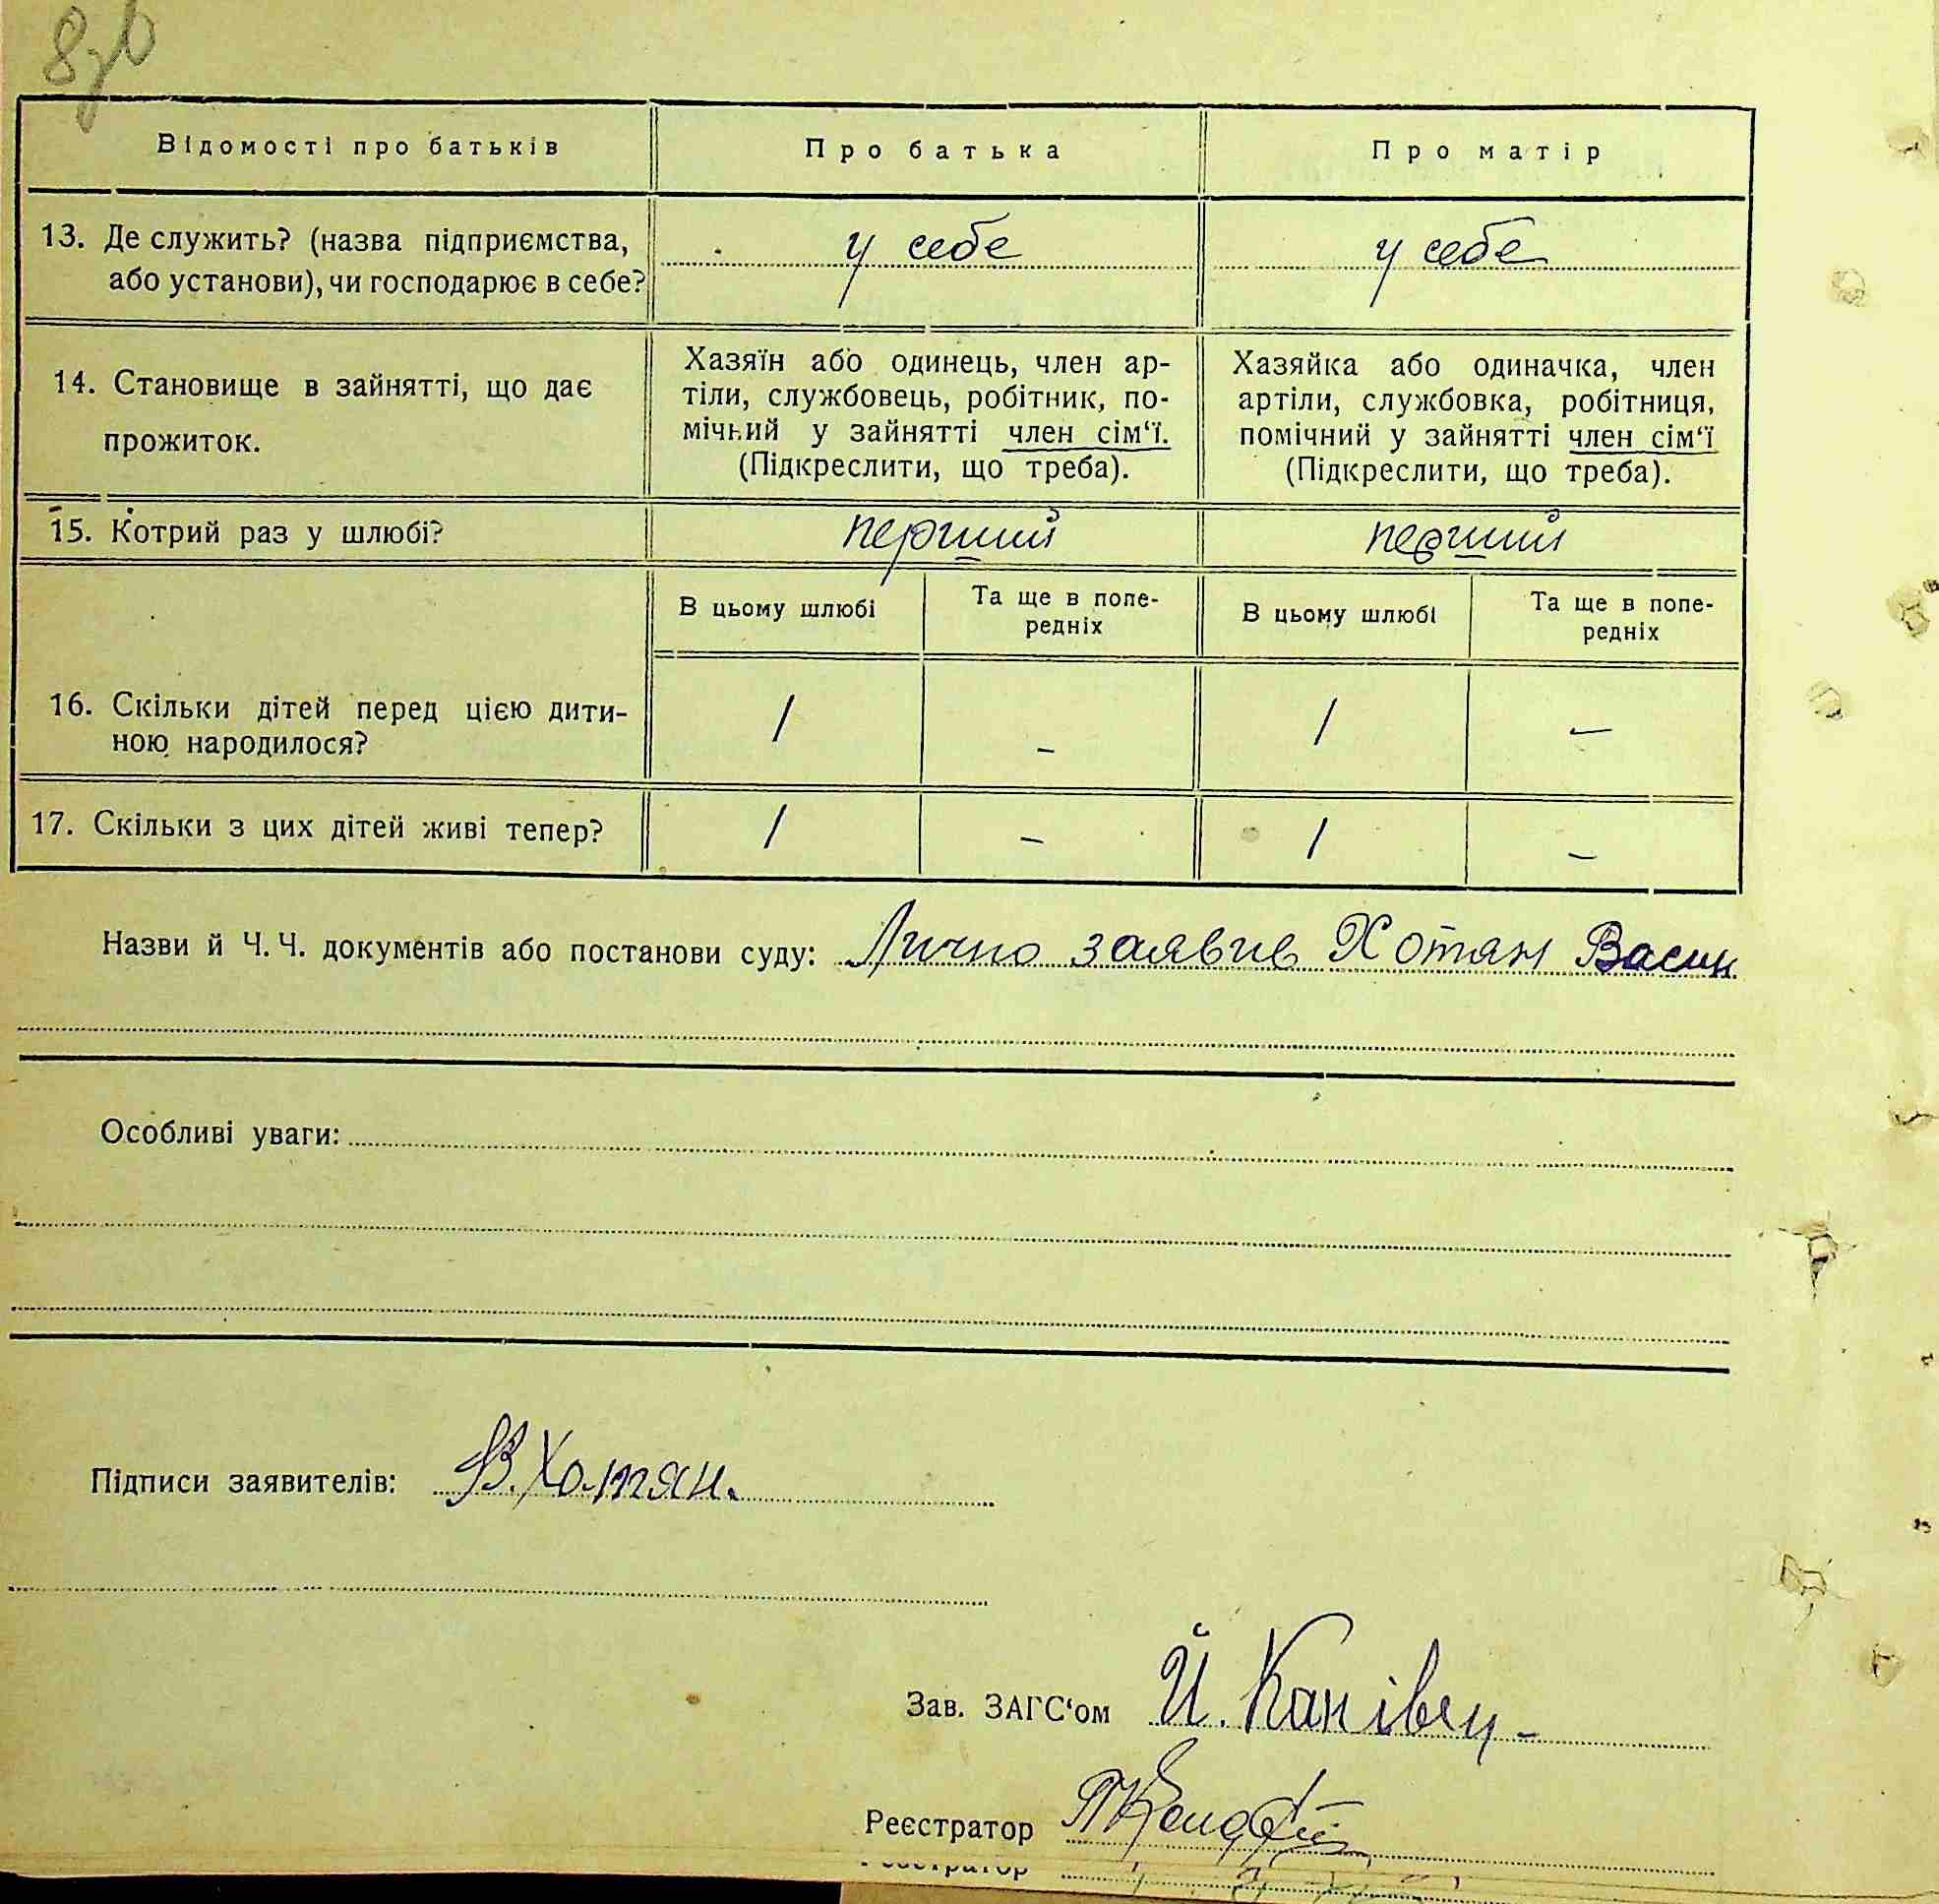 8зв
Відомості про батьків
Про батька
Про матір
13. Де служить? (назва підприємства,
або установи), чи господарює в себе?
у себе
у себе
14. Становище в зайнятті, що дає
прожиток.
Хазяїн або одинець, член ар-
тіли, службовець, робітник, по-
мічний у зайнятті член сім‘ї.
(Підкреслити, що треба).
Хазяйка або одиначка, член
артіли, службовка, робітниця,
помічний у зайнятті член сім‘ї
(Підкреслити, що треба).
15. Котрий раз у шлюбі?
перший
перший
В цьому шлюбі
Та ще в попе-
редніх
В цьому шлюбі
Та ще в попе-
редніх
16. Скільки дітей перед цією дити-
ною народилося?
1
–
1
–
17. Скільки з цих дітей живі тепер?
1
–
1
–
Назви й Ч. Ч. документів або постанови суду: Лично заявив Хотян Васил
Особливі уваги:
Підписи заявителів: В. Хотян.
Зав. ЗАГС‘ом Й. Канівец
Реєстратор
Реєстратор